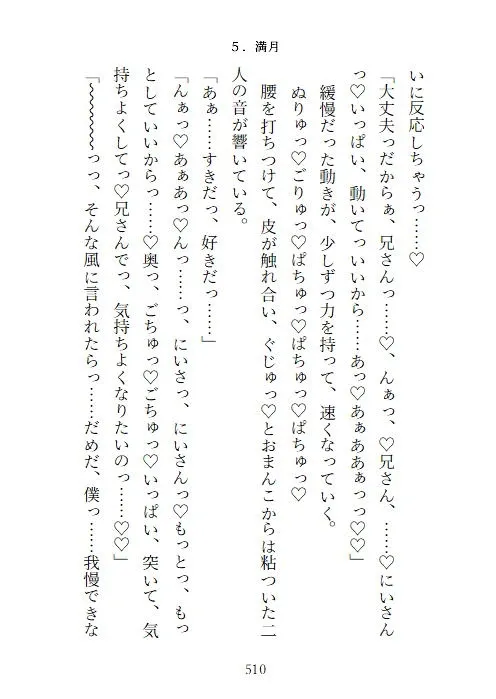 5．満月
いに反応しちゃうっ……♡
「大丈夫っだからぁ、兄さんっ……♡、んぁっ、♡兄さん、……♡にいさん
っ♡いっぱい、動いてっいいから……あっ♡あぁああぁっっ♡♡」
緩慢だった動きが、少しずつ力を持って、速くなっていく。
ぬりゅっ♡ごりゅっ♡ぱちゅっ♡ぱちゅっ♡ぱちゅっ♡
腰を打ちつけて、皮が触れ合い、ぐじゅっ♡とおまんこからは粘ついた二
人の音が響いている。
「あぁ……すきだっ、好きだっ……」
「んぁっ♡あぁあっ♡んっ……っ、にいさっ、にいさんっ♡もっとっ、もっ
としていいからっ……♡奥っ、ごちゅっ♡ごちゅっ♡いっぱい、突いて、気
持ちよくしてっ♡兄さんでっ、気持ちよくなりたいのっ……♡♡」
「〜〜〜〜〜〜っっ、そんな風に言われたらっ……だめだ、僕っ……我慢できな
510